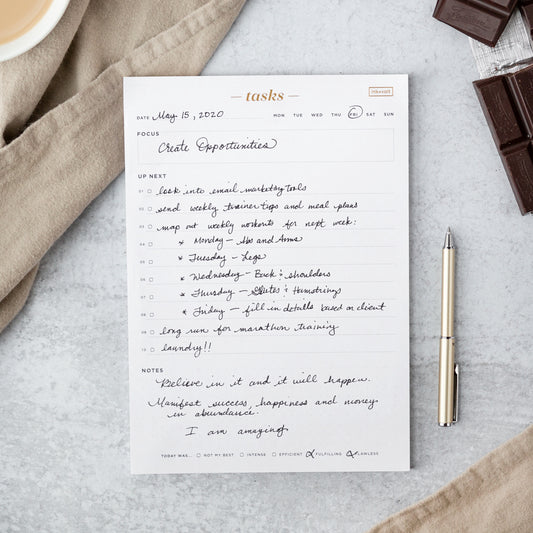 tasks
inkwell
DATE May 15, 2020 MON TUE WED THU FRI SAT SUN
FOCUS
Create Opportunities
UP NEXT
01 look into email marketing tools
02 send weekly trainer tips and meal plans
03 map out weekly workouts for next week:
04 * Monday - Abs and Arms
05 * Tuesday - Legs
06 * Wednesday - Back & shoulders
07 * Thursday - Glutes & Hamstrings
08 * Friday - fill in details based on client
09 long run for marathon training
10 laundry!!
NOTES
Believe in it and it will happen.
Manifest success, happiness and money
in abundance.
I am amazing
TODAY WAS... NOT MY BEST INTENSE EFFICIENT FULFILLING FLAWLESS